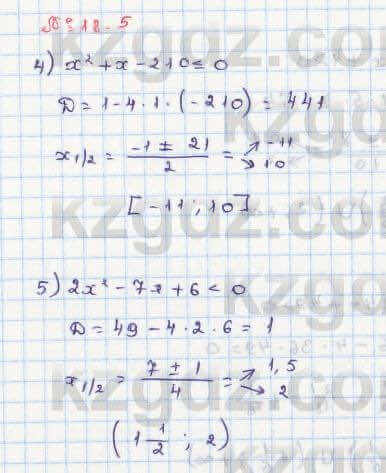 № 18.5
4) x² + x - 210 ≤ 0
D = 1 - 4 · 1 · (-210) = 441
x₁/₂ = (-1 ± 21)/2 = ↗ -11 ↘ 10
[-11 ; 10]
5) 2x² - 7x + 6 < 0
D = 49 - 4 · 2 · 6 = 1
x₁/₂ = (7 ± 1)/4 = ↗ 1,5 ↘ 2
(1 1/2 ; 2)
kzgdz.com